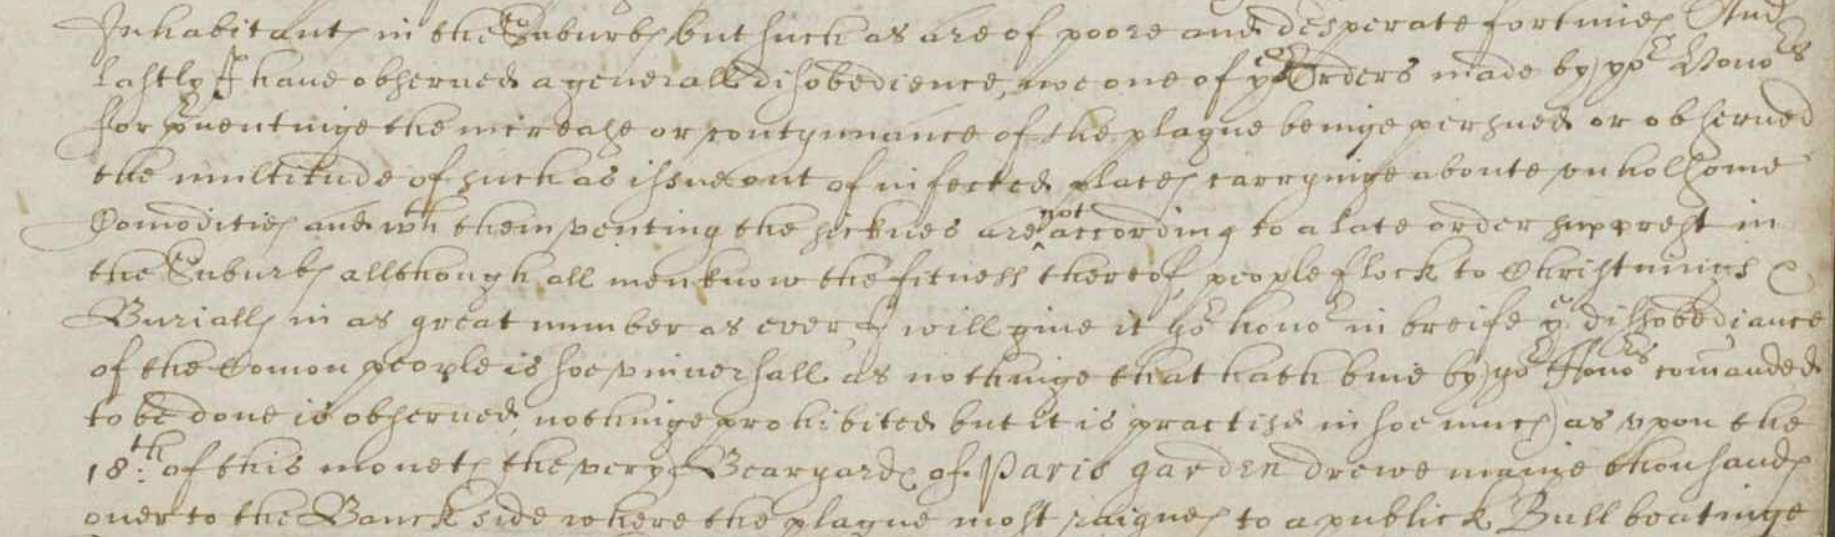 Inhabitants in the Suburbs but such as are of poore and desperate fortunes And
lastly I haue obserued a generall disobedience, noe one of ye Orders made by yor Honors
for pruentinge the increase or contynnance of the plague beinge persued or obserued
the multitude of such as issue out of infected places carryinge aboute vnholsome
Comodities and wth them venting the sicknes are not^ according to a late order supprest in
the Suburbs allthough all men know the fitness thereof, people flock to Christnings &
Burialls in as great number as ever, I will giue it yor honor in breife ye dissobediance
of the Comon people is soe vniuersall as nothinge that hath bine by yor Honors comanded
to be done is obserued, nothinge prohibited but it is practised in soe much as vpon the
18:th of this moneth the very Bearyarde of Paris garden drewe manie thousands
ouer to the Banckside where the plague most raignes to a publick Bull beatinge